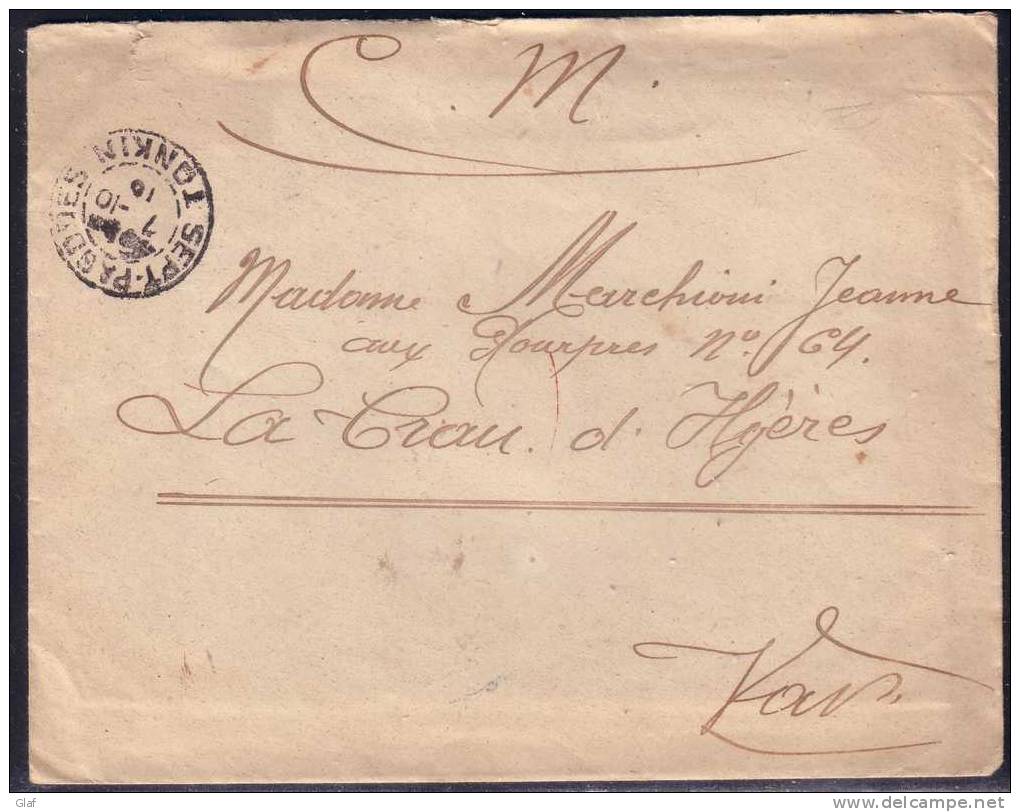 C. M.
TONKIN
SEPT-PAGODES
7
-10
16
Madame Marchioni Jeanne
aux Pourpres No. 64.
La Crau. d. Hyères
Var.
Glaf
www.delcampe.net